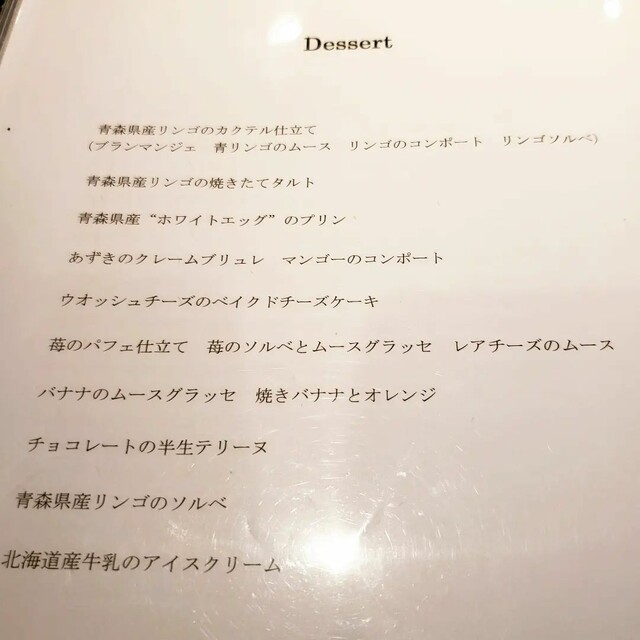 Dessert
青森県産リンゴのカクテル仕立て
(ブランマンジェ　青リンゴのムース　リンゴのコンポート　リンゴソルベ)
青森県産リンゴの焼きたてタルト
青森県産“ホワイトエッグ”のプリン
あずきのクレームブリュレ　マンゴーのコンポート
ウオッシュチーズのベイクドチーズケーキ
苺のパフェ仕立て　苺のソルベとムースグラッセ　レアチーズのムース
バナナのムースグラッセ　焼きバナナとオレンジ
チョコレートの半生テリーヌ
青森県産リンゴのソルベ
北海道産牛乳のアイスクリーム